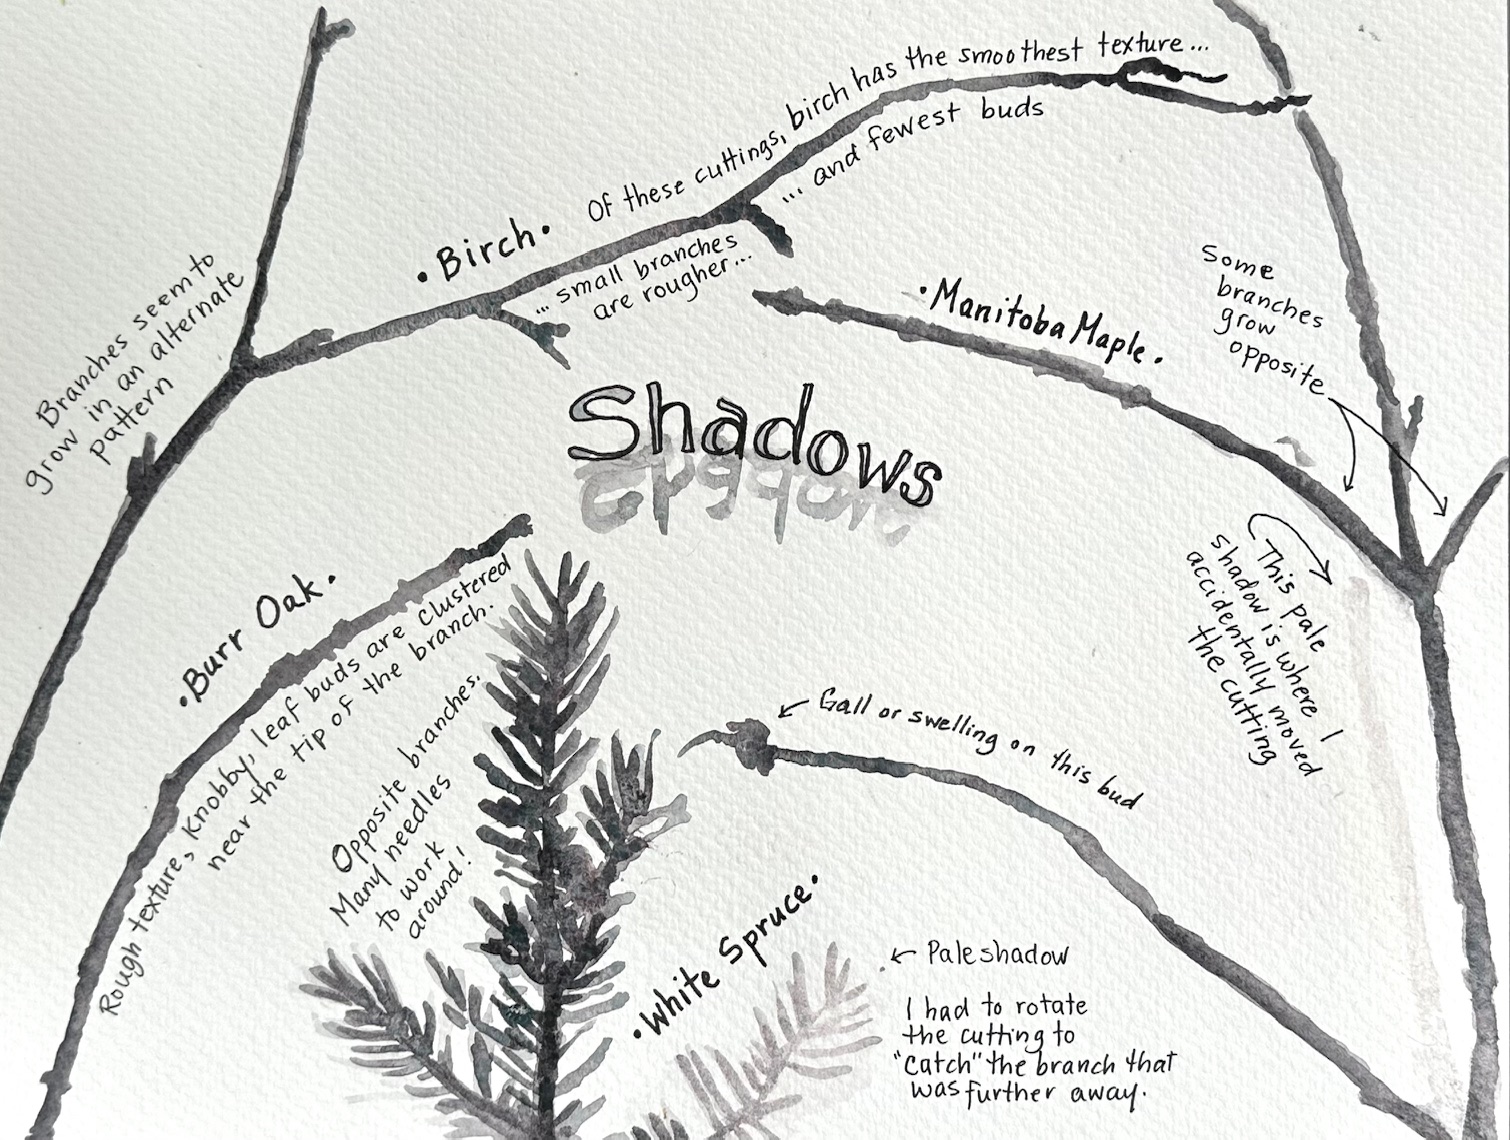 Of these cuttings, birch has the smoothest texture...
... and fewest buds
• Birch •
... small branches
are rougher...
Branches seem to
grow in an alternate
pattern
• Manitoba Maple •
Some
branches
grow
opposite
Shadows
This pale
shadow is where I
accidentally moved
the cutting
• Burr Oak •
Rough texture, knobby, leaf buds are clustered
near the tip of the branch.
Opposite branches.
Many needles
to work
around!
Gall or swelling on this bud
• White Spruce •
Pale shadow
I had to rotate
the cutting to
"catch" the branch that
was further away.